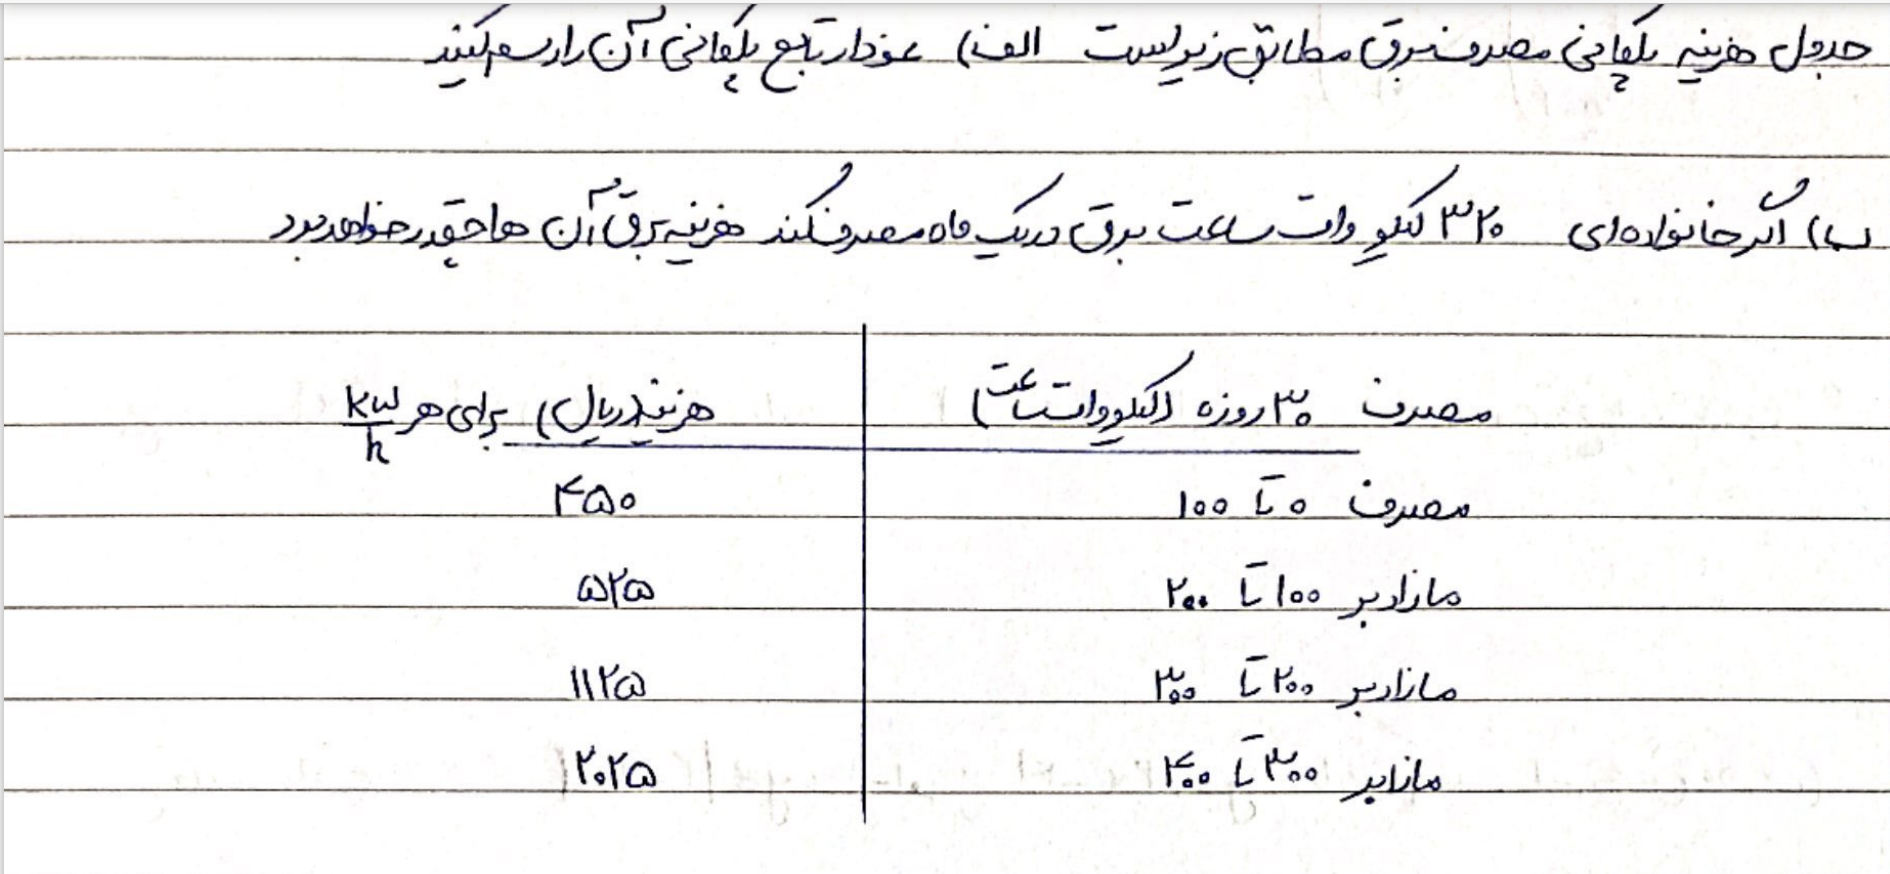 جدول هزینه پلکانی مصرف برق مطابق زیر است الف) نمودار تابع پلکانی آن را رسم کنید
ب) اگر خانواده ای ۳۲۰ کیلو وات ساعت برق در یک ماه مصرف کند هزینه برق آن ها چقدر خواهد بود
مصرف ۳۰ روزه (کیلو وات ساعت) هزینه (ریال) برای هر kw/h
مصرف ۰ تا ۱۰۰ ۴۵۰
مازاد بر ۱۰۰ تا ۲۰۰ ۵۲۵
مازاد بر ۲۰۰ تا ۳۰۰ ۱۱۲۵
مازاد بر ۳۰۰ تا ۴۰۰ ۲۰۲۵